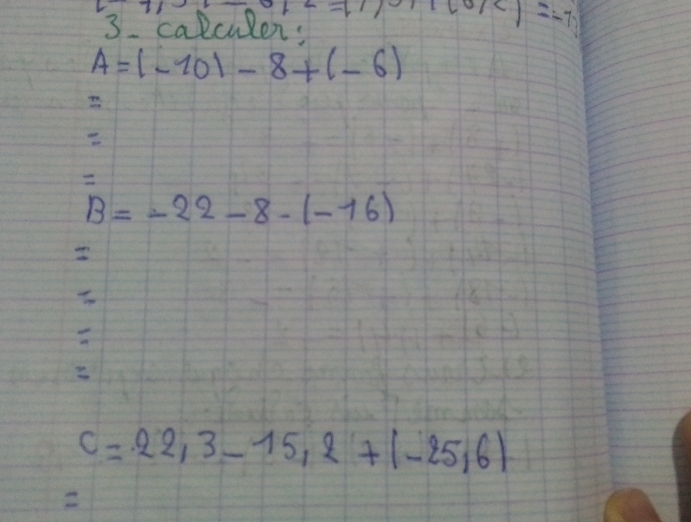 3- calculer:
A = (-10) - 8 + (-6)
=
=
=
B = -22 - 8 - (-16)
=
=
=
=
C = 22,3 - 15,2 + (-25,6)
=